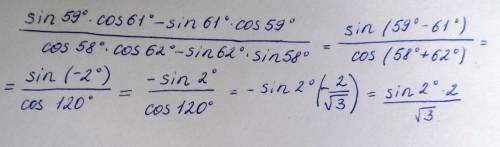 (sin 59° · cos 61° − sin 61° · cos 59°) / (cos 58° · cos 62° − sin 62° · sin 58°) = sin (59° − 61°) / cos (58° + 62°) =
= sin (−2°) / cos 120° = −sin 2° / cos 120° = − sin 2° (−2/√3) = sin 2° · 2 / √3